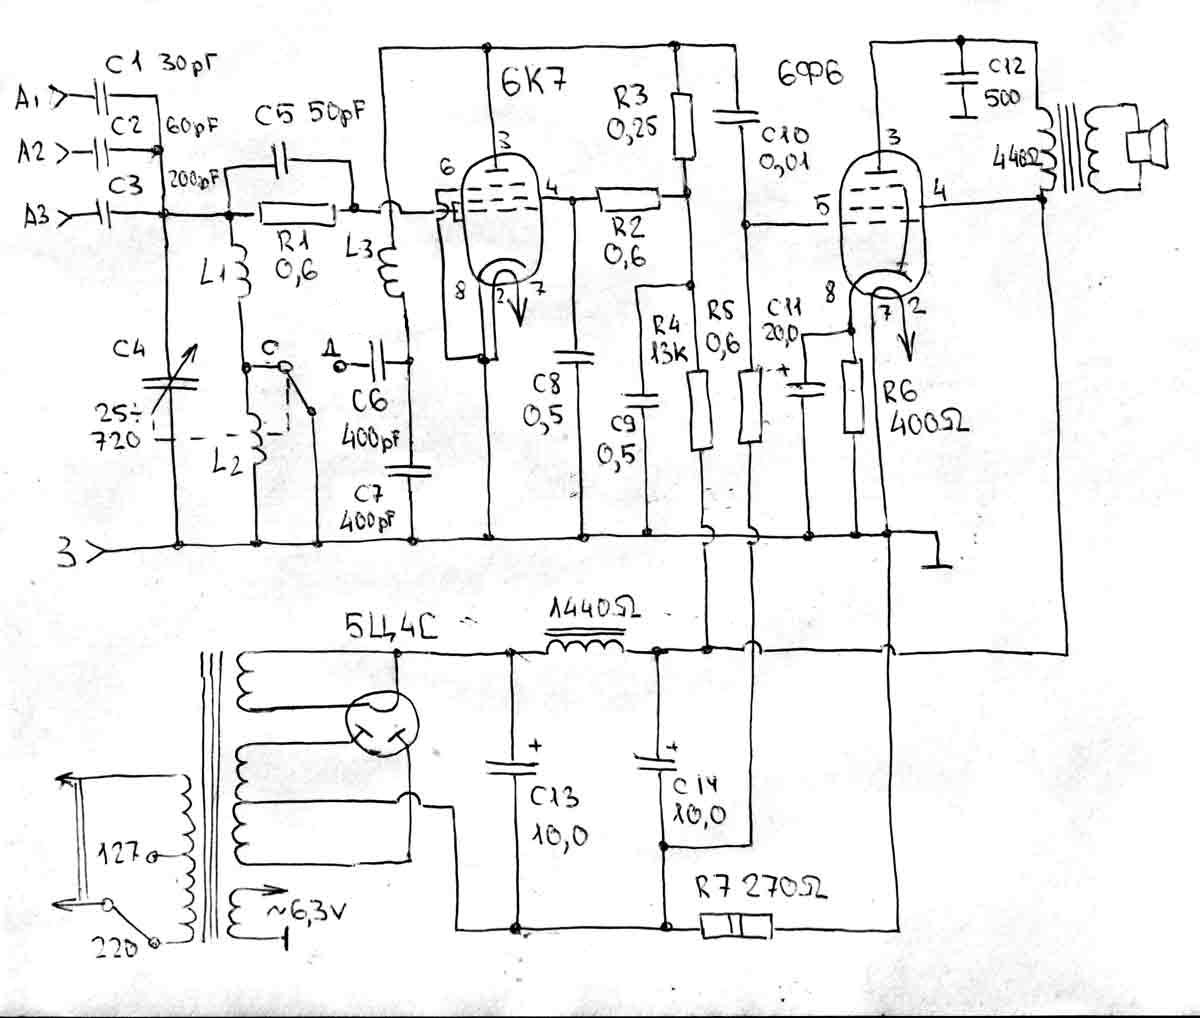 C1 30pГ
A1
C2
60pF
A2
C3
200pF
A3
C5 50pF
R1
0,6
L1
L3
C4
25÷
720
L2
C
A
C6
400pF
C7
400pF
З
6К7
3
6
4
8
2
7
R3
0,25
R2
0,6
C10
0,01
R4
13K
R5
0,6
C8
0,5
C9
0,5
6Ф6
3
5
4
8
7
2
C12
500
440Ω
C11
20,0
+
R6
400Ω
5Ц4С
1440Ω
+
C13
10,0
+
C14
10,0
R7 270Ω
127
220
~6,3V